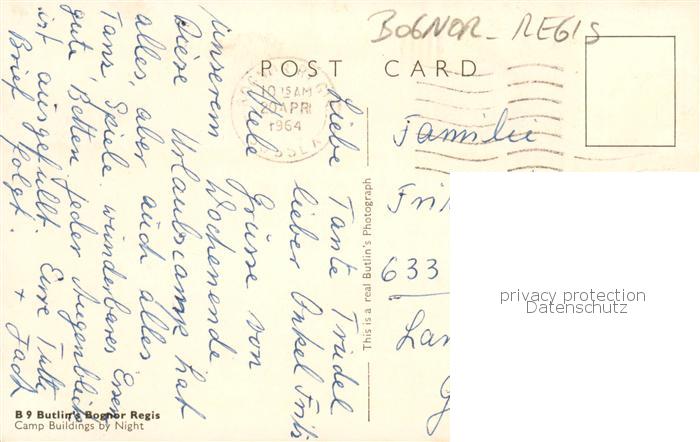 BOGNOR-REGIS
POST CARD
10 15 AM
20 APR
1964
SUSSEX
Liebe Tante Trudel
lieber Onkel Fritz
Viele Grüsse von
unserem Wochenende
Diese Urlaubscamp hat
alles, aber auch alles
Tanz, Spiele wunderbares Essen
gute Betten. Jeder Augenblick
ist ausgefüllt. Eure Jutta
Brief folgt. +
Familie
633
This is a real Butlin's Photograph
privacy protection
Datenschutz
B 9 Butlin's Bognor Regis
Camp Buildings by Night